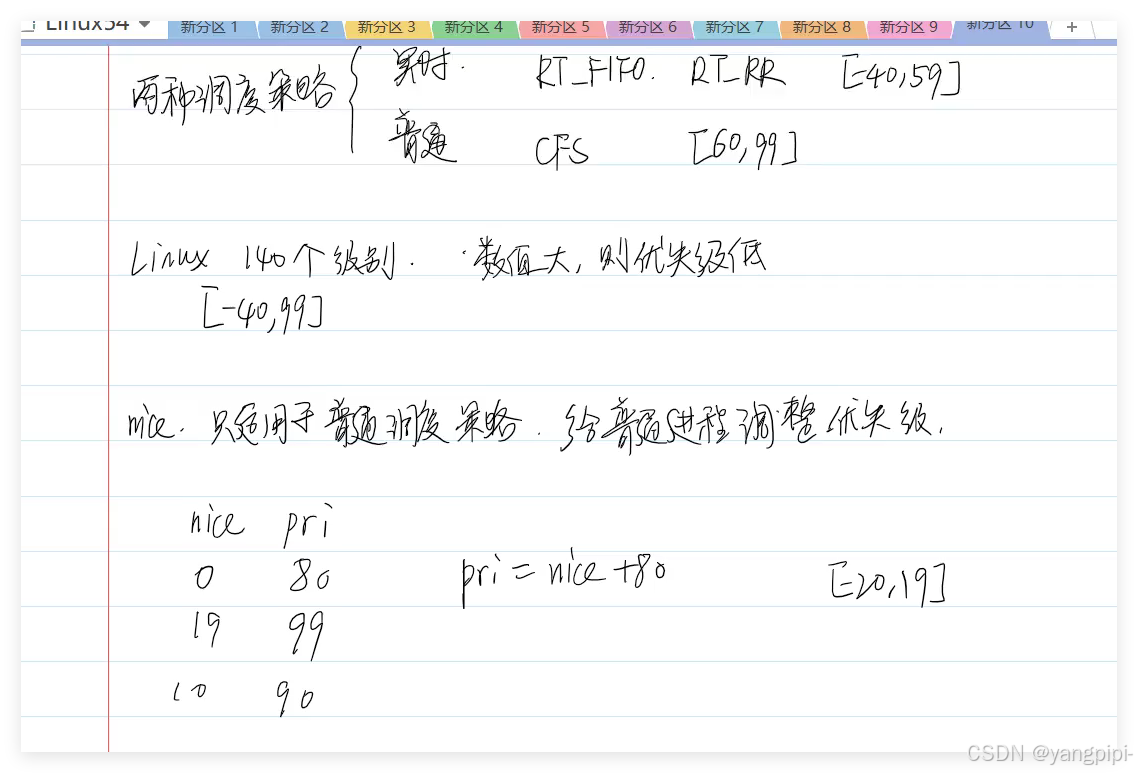 Linux54
新分区 1 新分区 2 新分区 3 新分区 4 新分区 5 新分区 6 新分区 7 新分区 8 新分区 9 新分区 10 +
实时. RT_FIFO. RT_RR [-40,59]
两种调度策略
普通 CFS [60,99]
Linux 140个级别. 数值大,则优先级低
[-40,99]
nice. 只适用于普通调度策略. 给普通进程调整优先级.
nice pri
0 80 pri = nice +80 [-20,19]
19 99
10 90
CSDN @yangpipi-